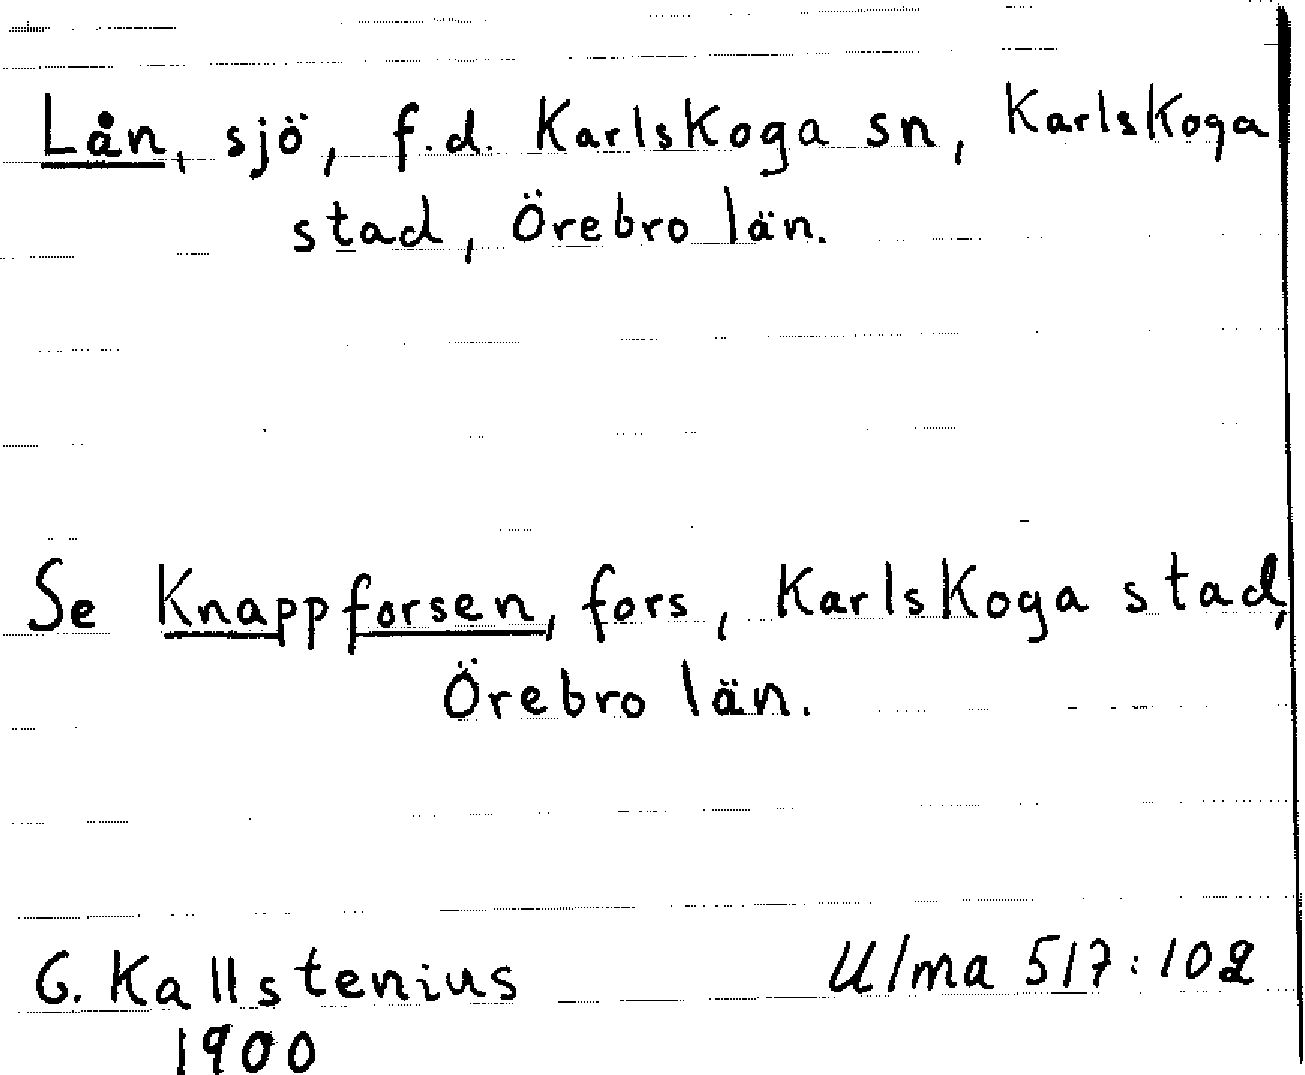 Lån, sjö, f.d. Karlskoga sn, Karlskoga
stad, Örebro län.
Se Knappforsen, fors, Karlskoga stad,
Örebro län.
G. Kallstenius Ulma 517:102
1900